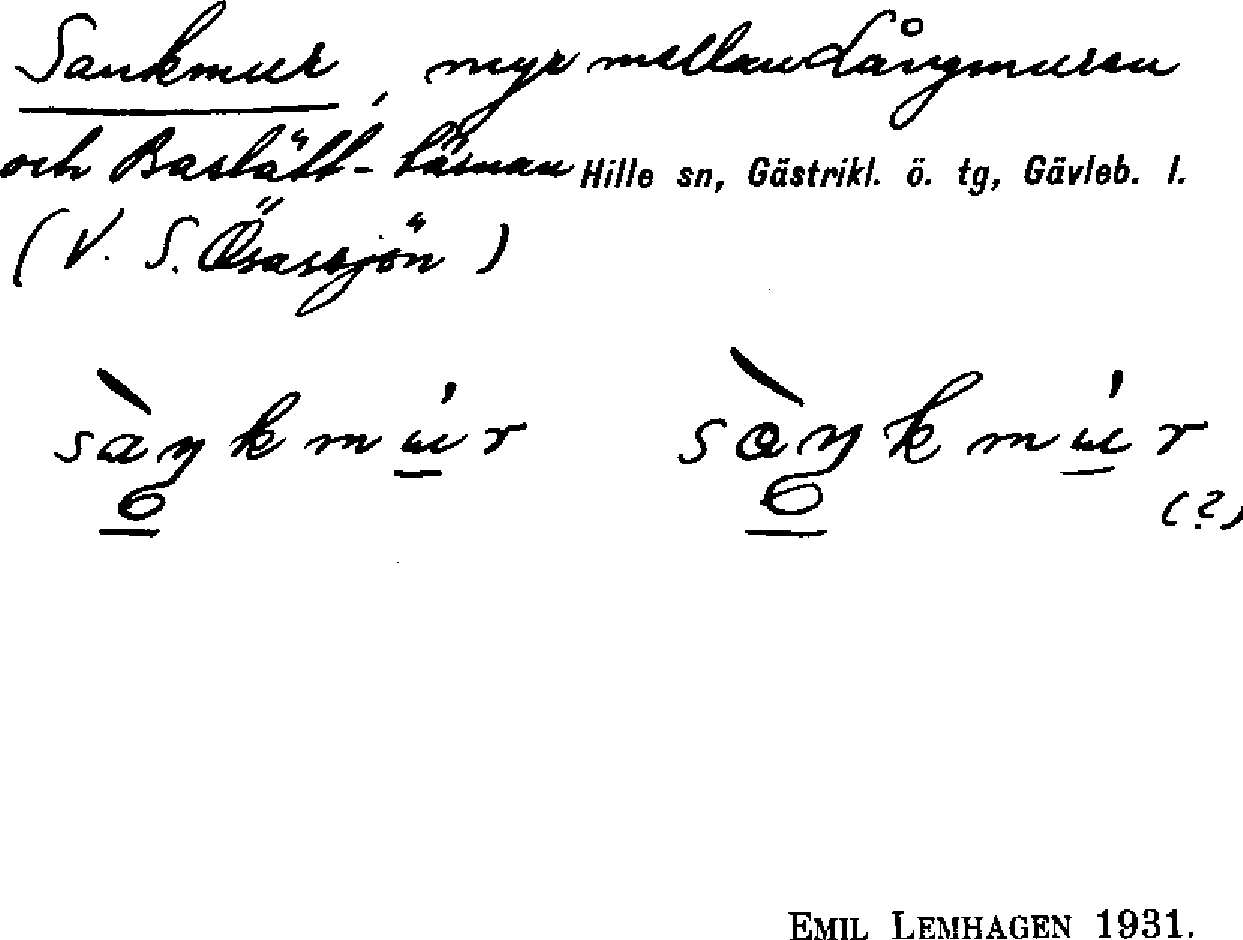 Sankmur, myr mellan Långmuren
och Baslätt-tärnan Hille sn, Gästrikl. ö. tg, Gävleb. l.
(V. S. Ösarsjön)
sàŋkmúr sàŋkmúr
(?)
EMIL LEMHAGEN 1931.